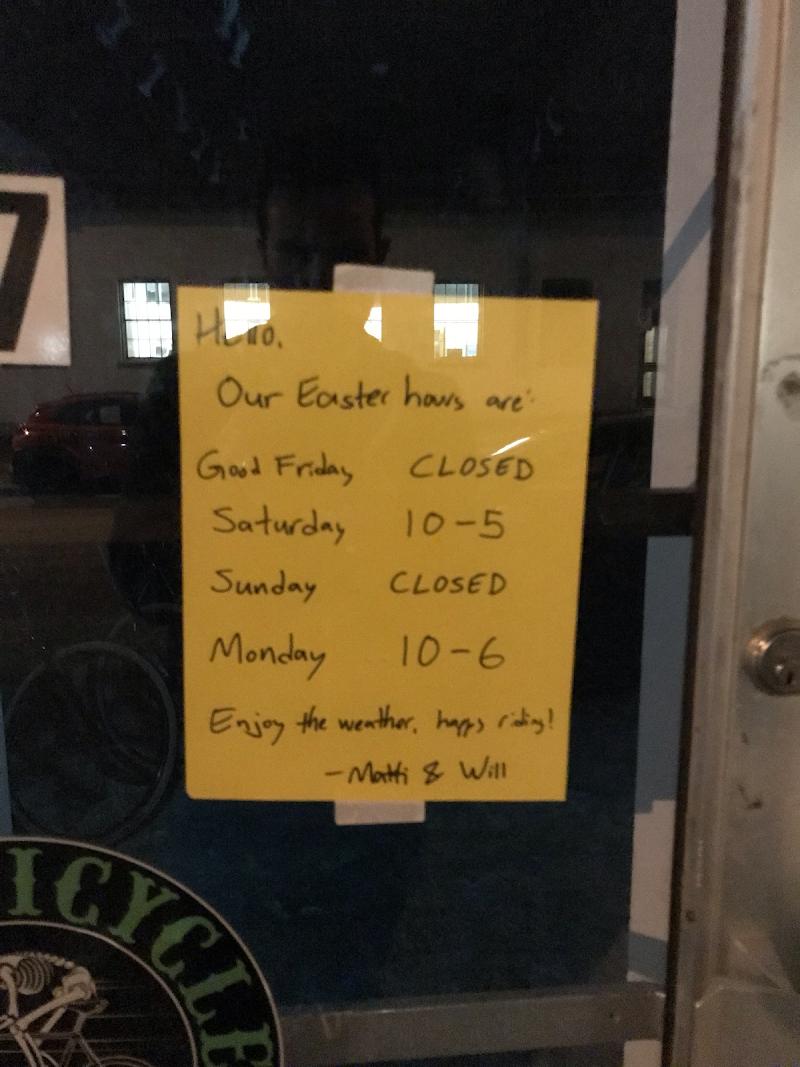 7
Hello,
Our Easter hours are:
Good Friday CLOSED
Saturday 10-5
Sunday CLOSED
Monday 10-6
Enjoy the weather, happy riding!
- Matti & Will
ICYCLE